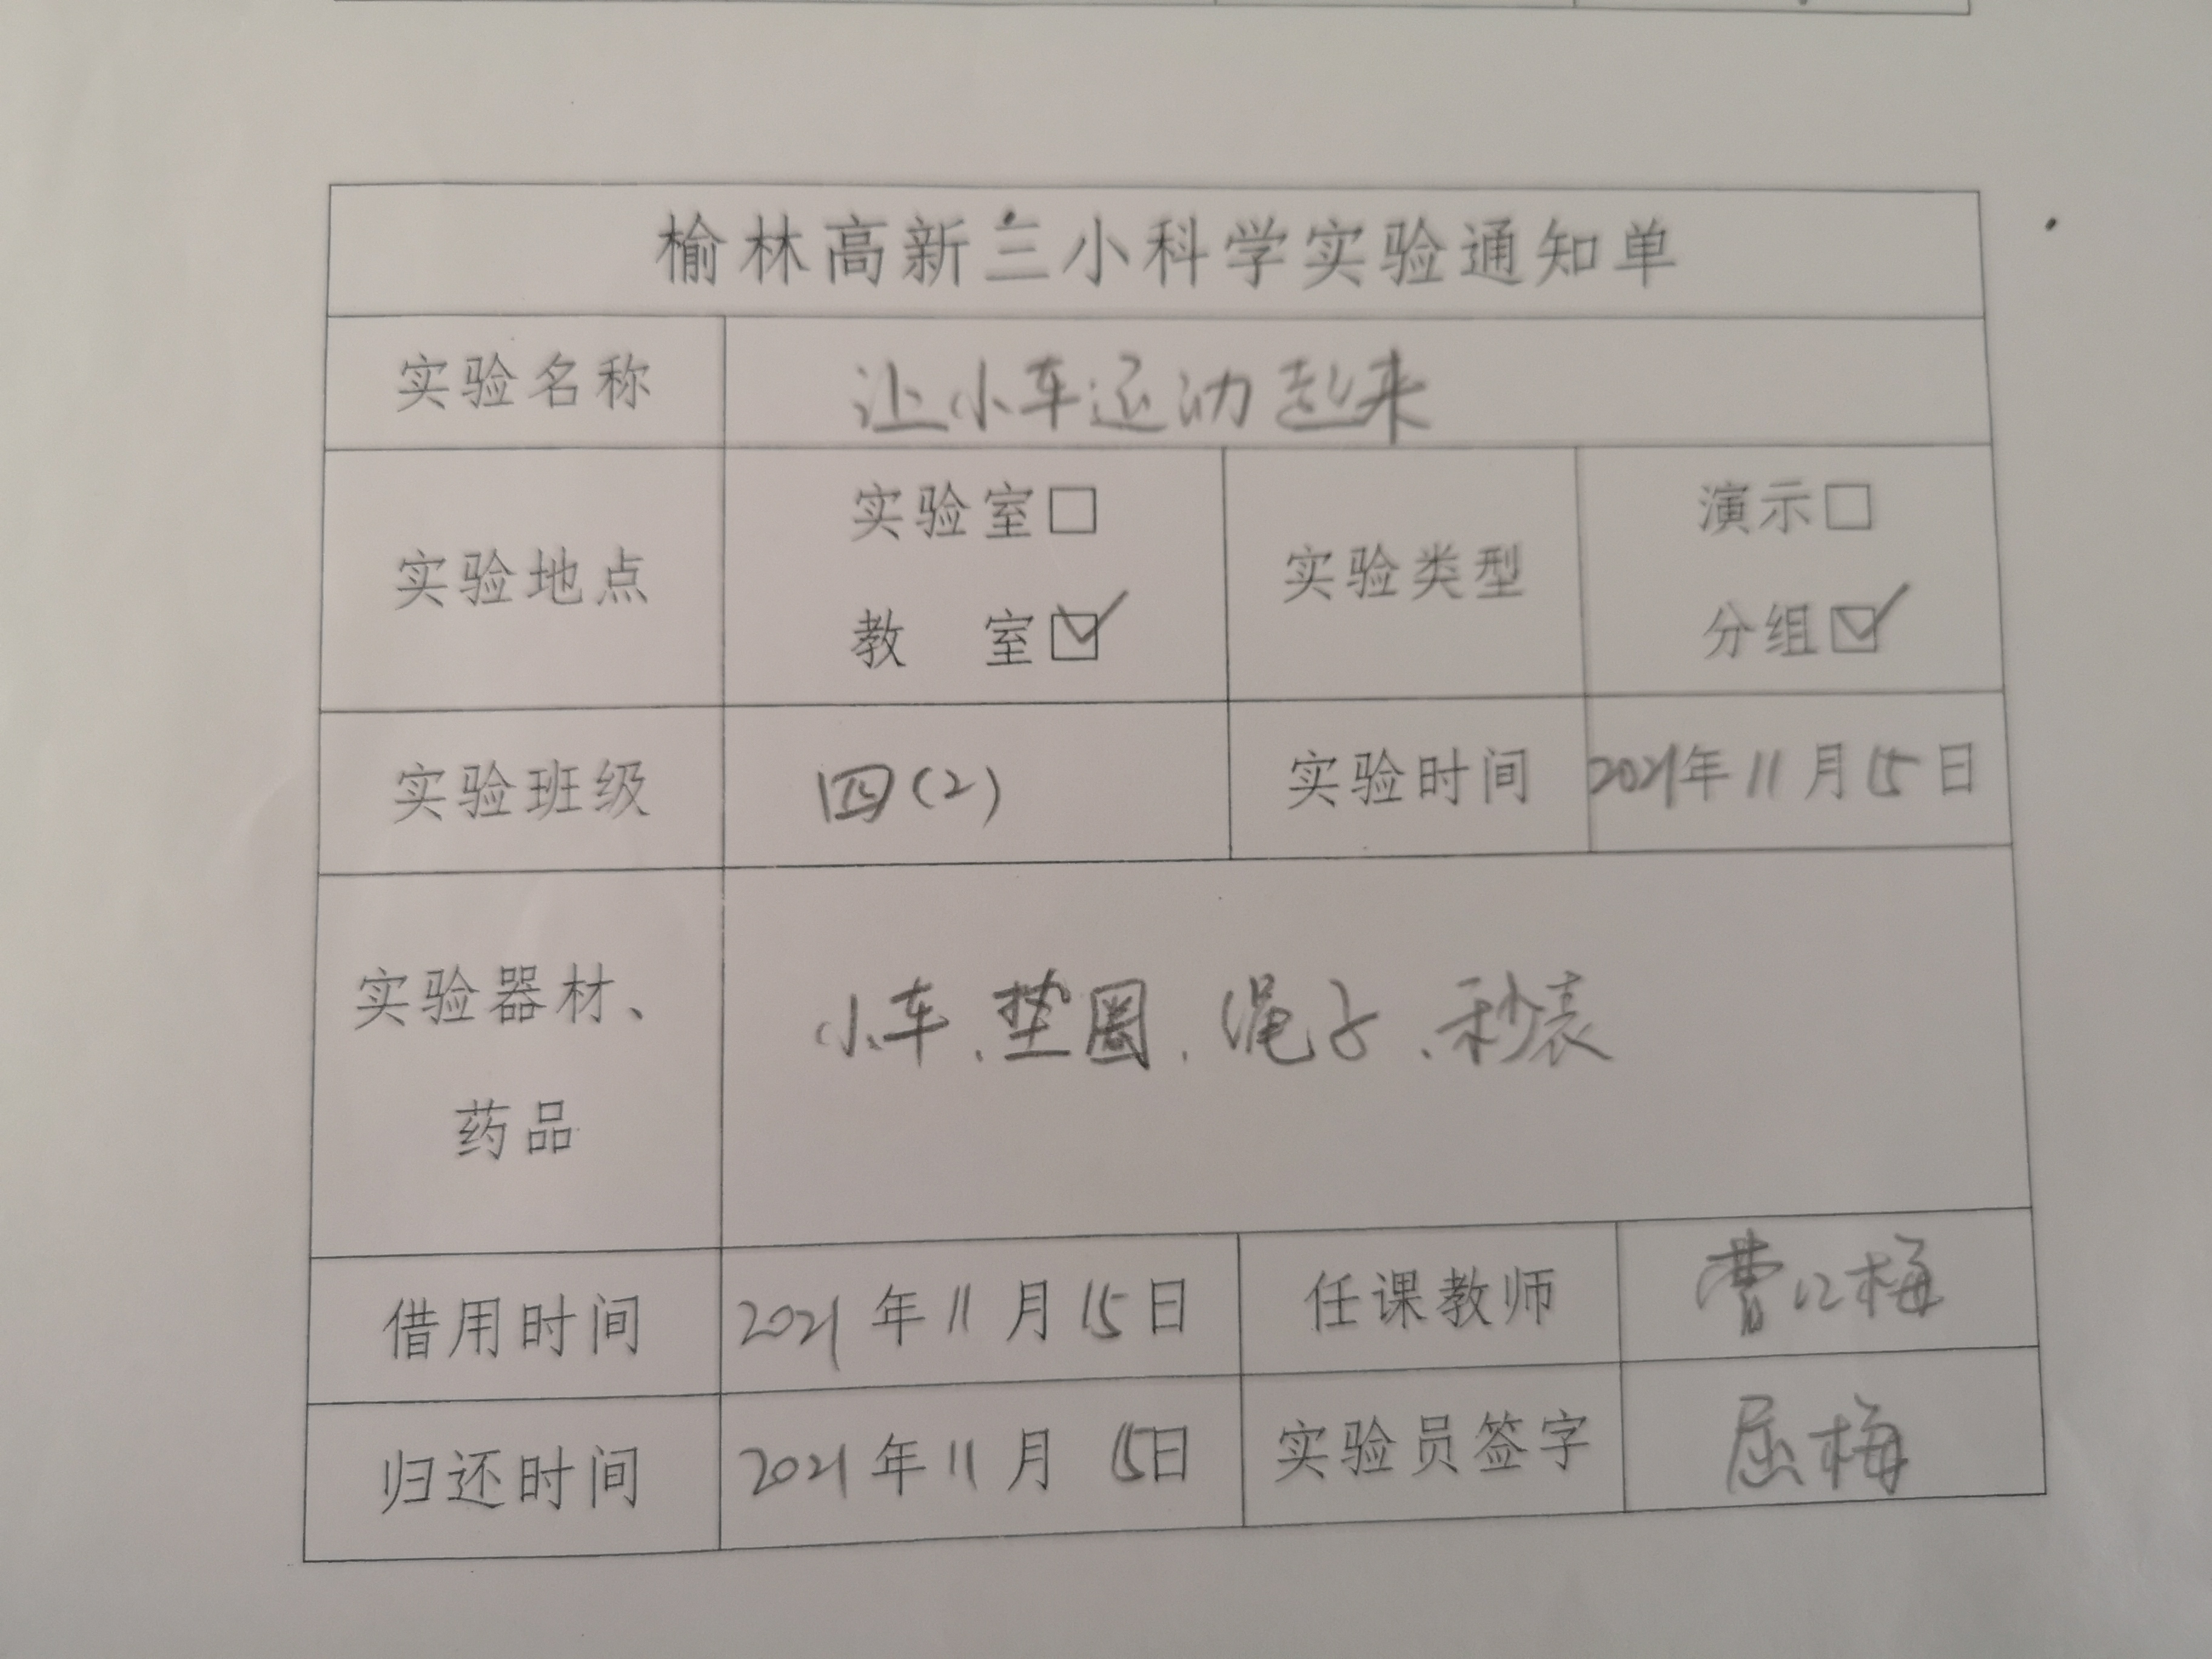 榆林高新三小科学实验通知单
实验名称 让小车运动起来
实验地点 实验室□ 教 室☑ 实验类型 演示□ 分组☑
实验班级 四(2) 实验时间 2021年11月15日
实验器材、药品 小车、垫圈、绳子、秒表
借用时间 2021年11月15日 任课教师 曹江梅
归还时间 2021年11月15日 实验员签字 屈梅